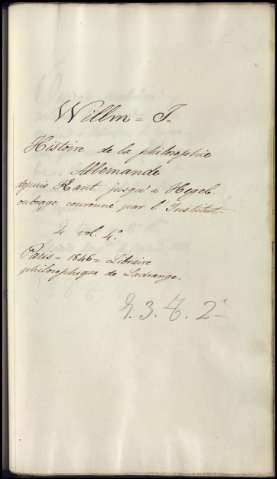 Willm = J.
Histoire de la philosophie
Allemande
depuis Kant jusqu'a Hegel.
ouvrage couronné par l'Institut.
4 vol. 4.º
Paris = 1846 = Librairie
philosophique de Ladrange.
3. 2ª